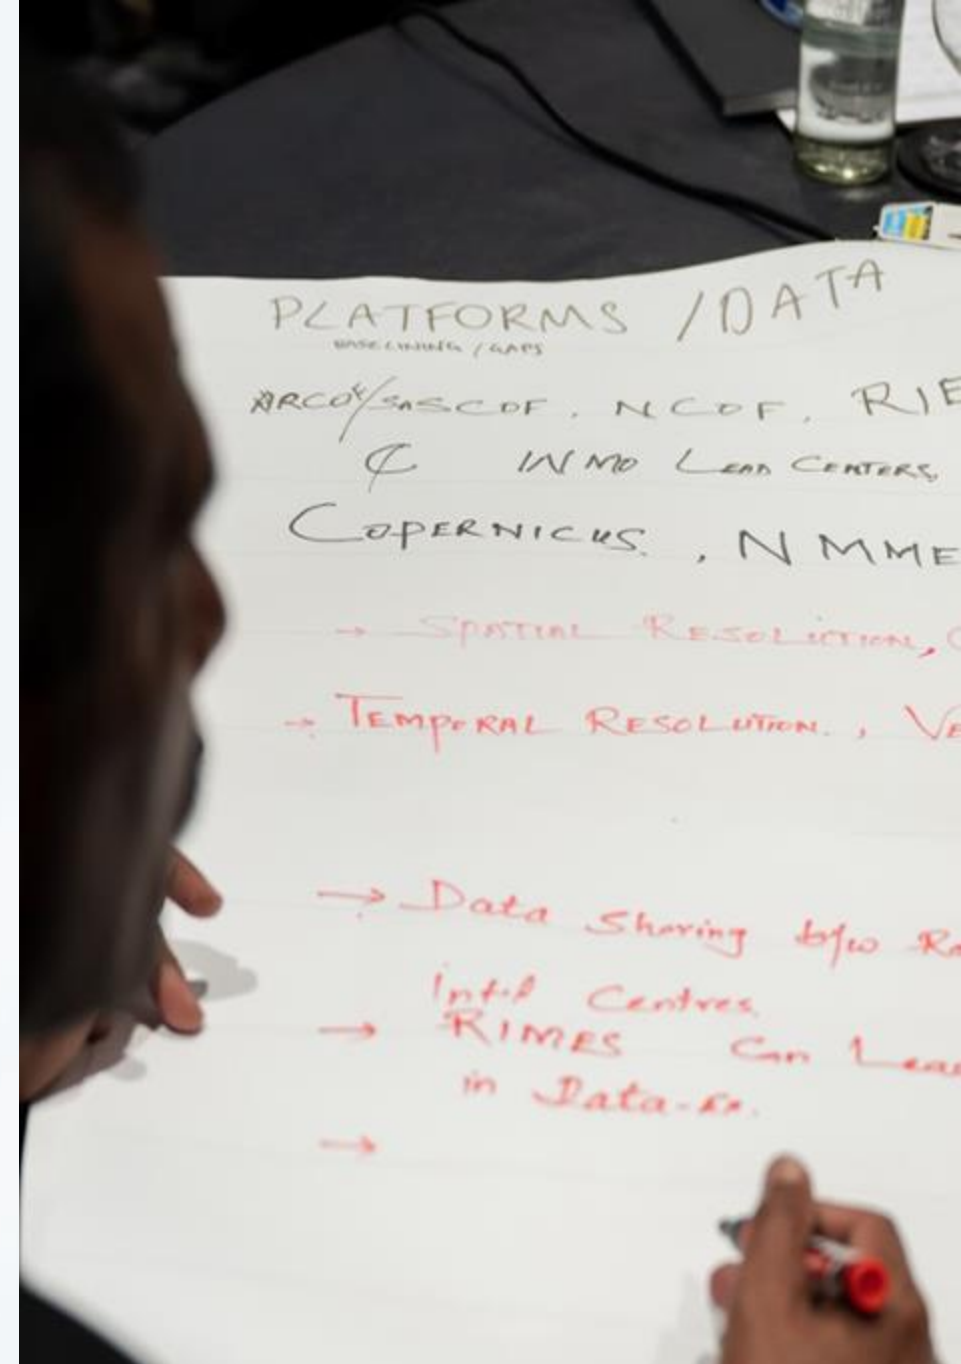 PLATFORMS / DATA
BASELINING / GAPS
SASCOF, NCOF, RIE
WMO LEAD CENTERS,
COPERNICUS, NMME
→ SPATIAL RESOLUTION,
→ TEMPORAL RESOLUTION, VE
→ Data Sharing b/w Ra
Int'l Centres.
→ RIMES Can Lead
in Data-Ex.
→